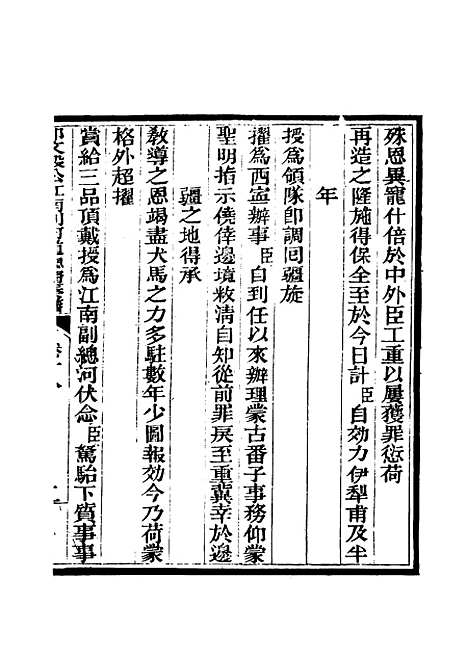 殊恩異寵什倍於中外臣工重以屢獲罪愆荷
再造之隆施得保全至於今日計臣自効力伊犁甫及半
年
授爲領隊卽調回疆旋
擢爲西寧辦事臣自到任以來辦理蒙古番子事務仰蒙
聖明指示僥倖邊境敉清自知從前罪戾至重冀幸於邊
疆之地得承
敎導之恩竭盡犬馬之力多駐數年少圖報効今乃荷蒙
格外超擢
賞給三品頂戴授爲江南副總河伏念臣駑駘下質事事